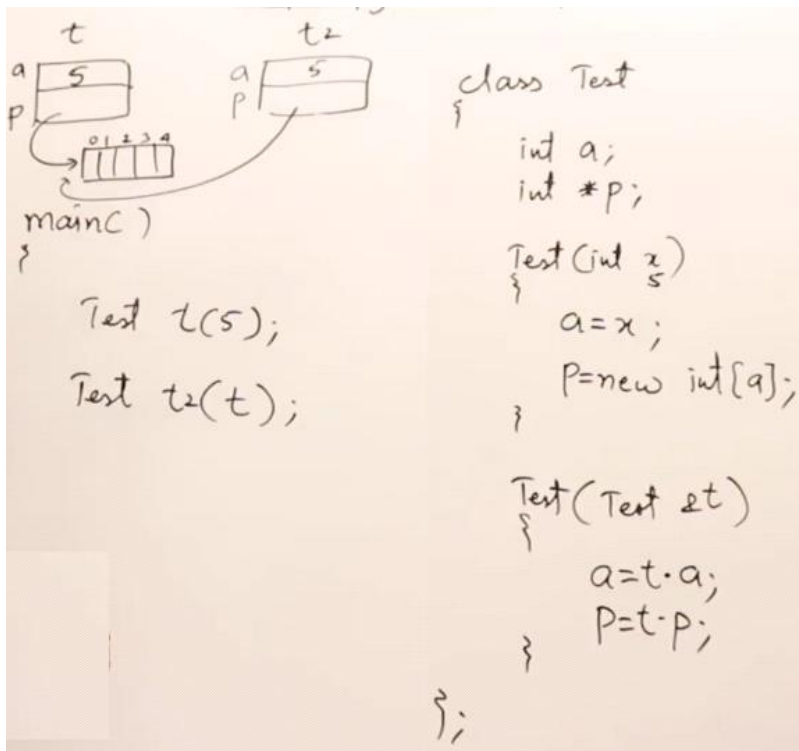 t
t2
a 5
p
0 1 2 3 4
a 5
p
main()
{
Test t(5);
Test t2(t);
class Test
{
int a;
int *p;
Test(int x)
5
{
a=x;
p=new int[a];
}
Test(Test &t)
{
a=t.a;
p=t.p;
}
};